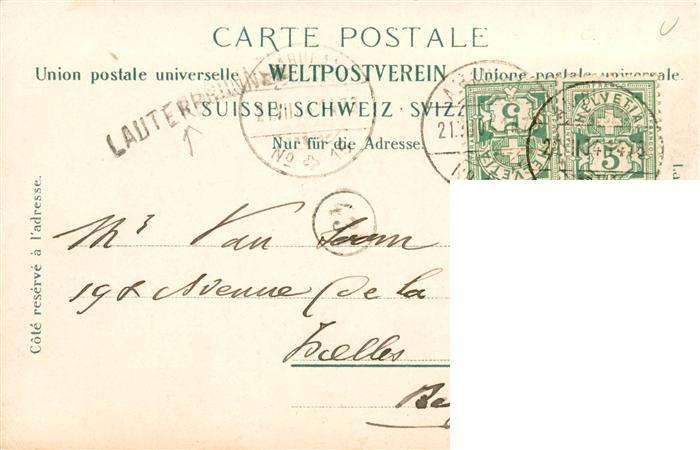 CARTE POSTALE
Union postale universelle WELTPOSTVEREIN Unione postale universale.
SUISSE·SCHWEIZ·SVIZZ
Nur für die Adresse.
LAUTERBRUNNEN
No 1
5
HELVETIA
HELVETIA
5
Côté reservé à l'adresse.
Mr Van Loom
198 Avenue De la
Ixelles